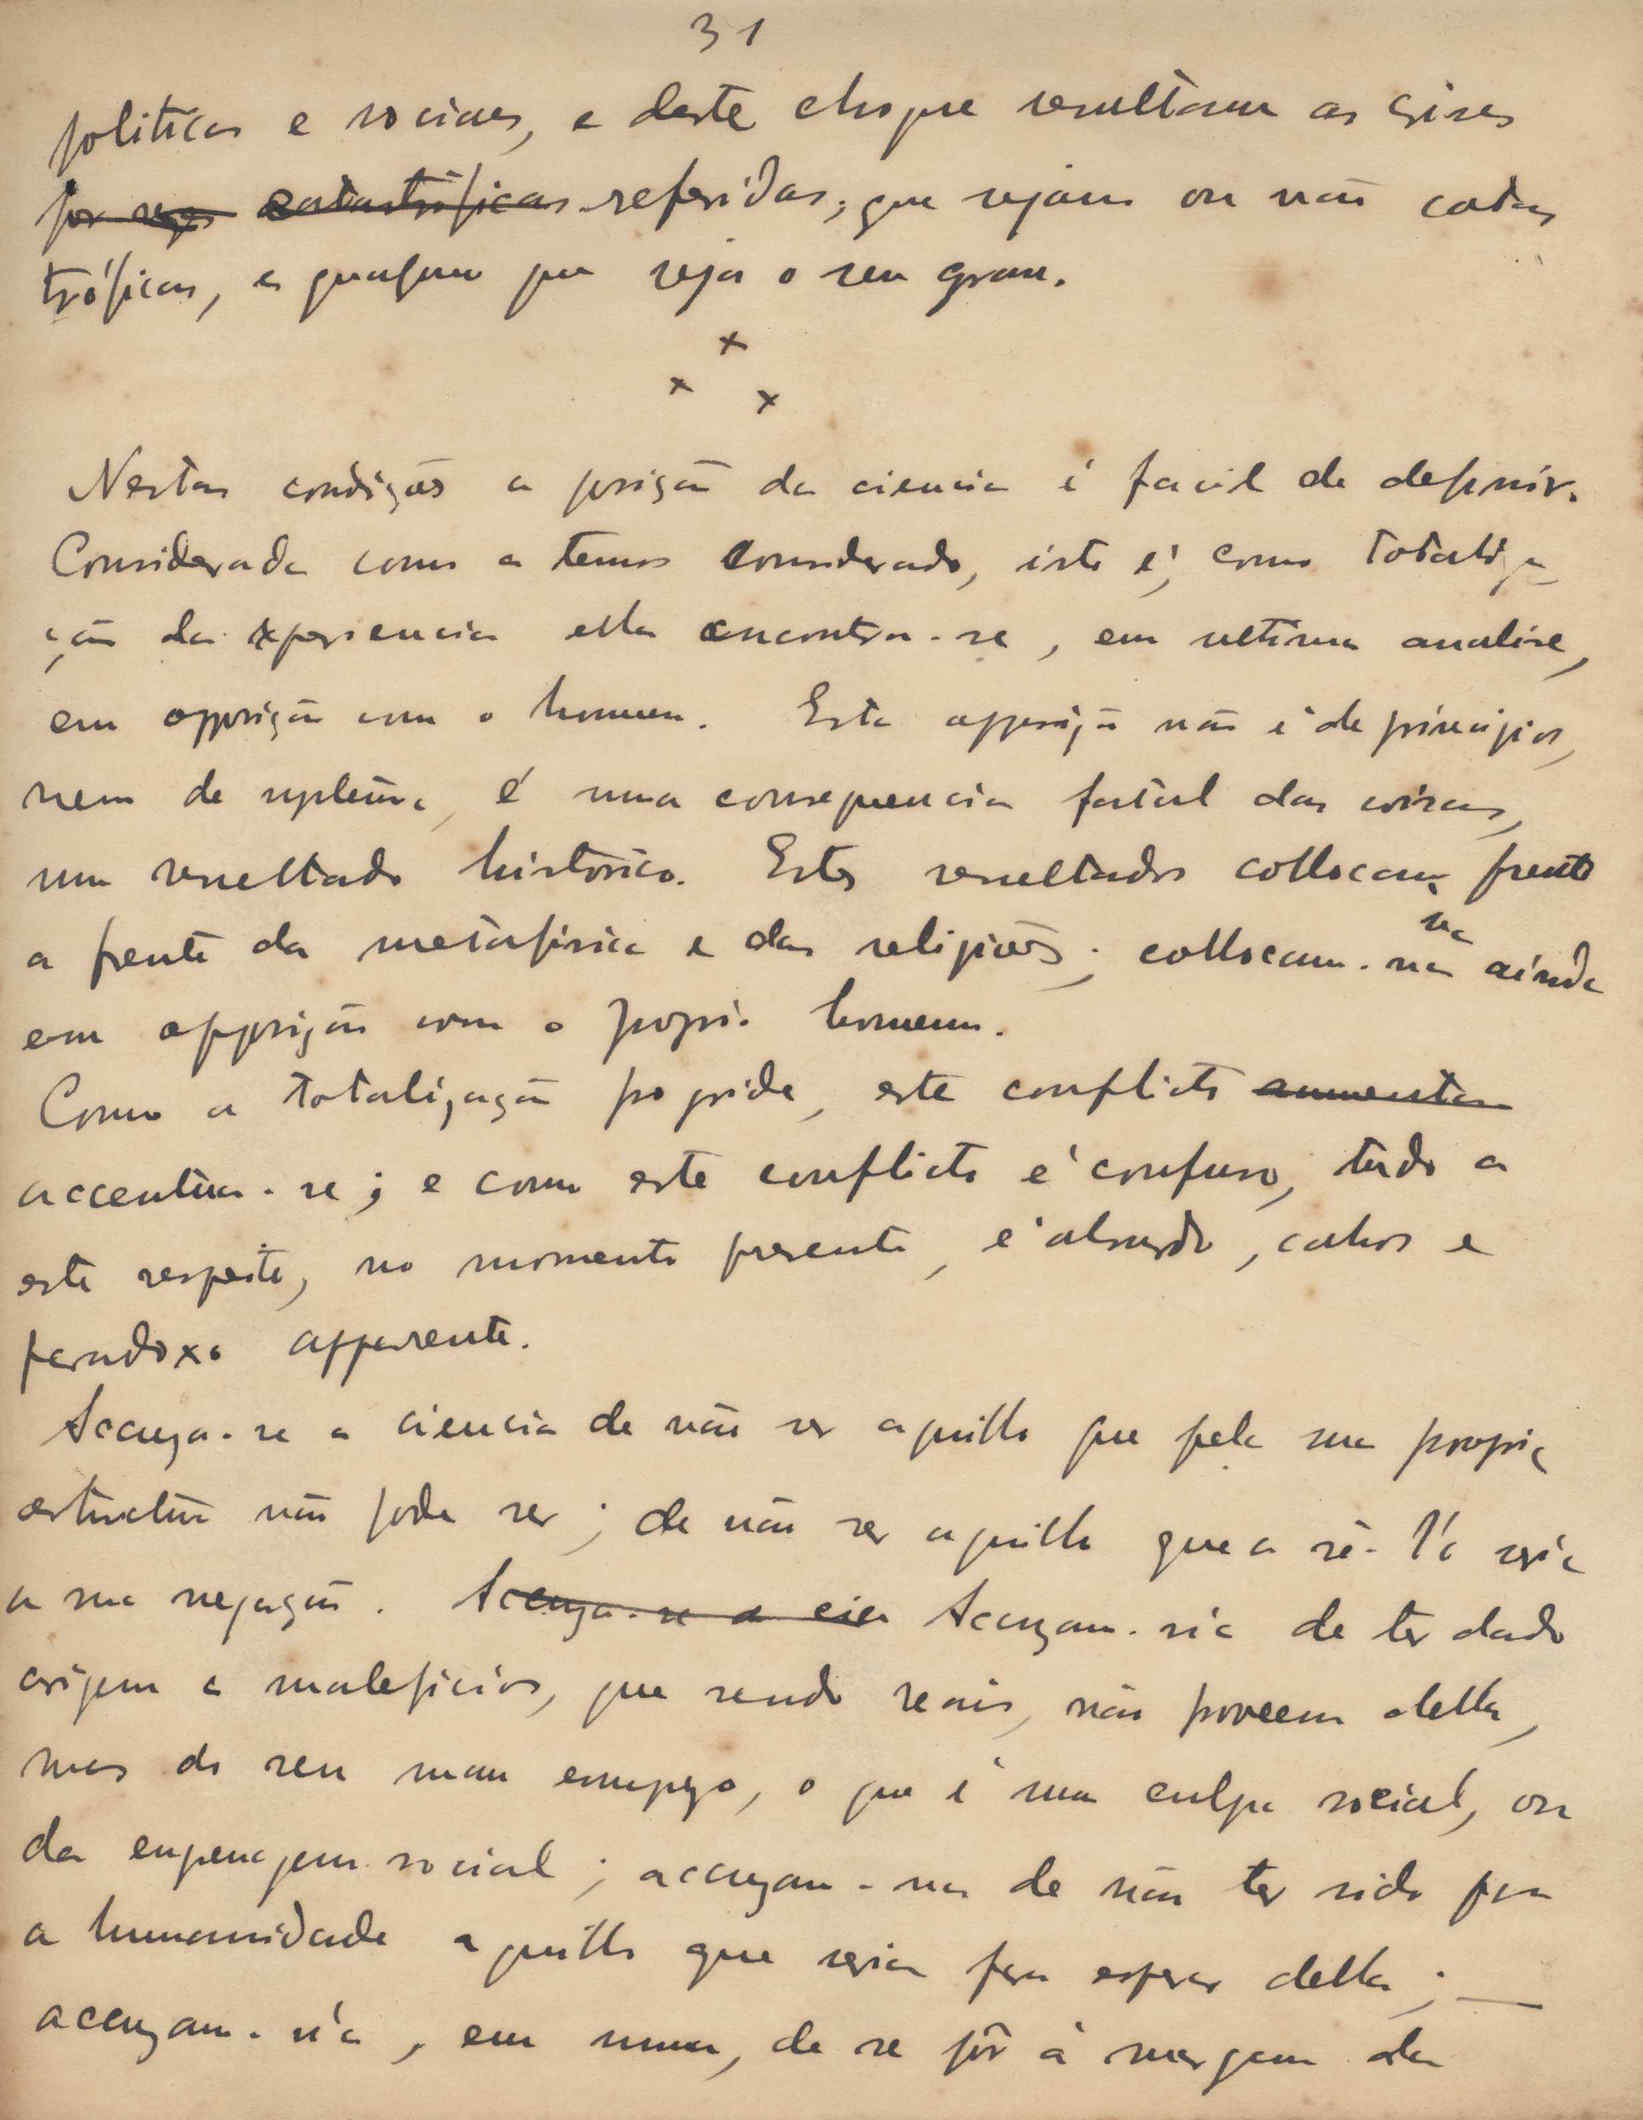 31
politicas e sociaes, e deste choque resultam as crises
por vezes catastróficas referidas, que sejam ou não catas
tróficas, e qualquer que seja o seu grau.
x
x x
Nestas condições a posição da ciencia é facil de definir.
Considerada como a temos considerado, isto é, como totaliza
ção da experiencia ella encontra-se, em ultima analise,
em opposição com o homem. Esta opposição não é de principios,
nem de systema, é uma consequencia fatal das coisas,
um resultado historico. Estes resultados collocam frente
a frente da metafisica e das religiões; collocam-na ainda
na
em opposição com o proprio homem.
Como a totalização progride, este conflicto aumenta
accentua-se; e como este conflicto é confuso, tudo a
este respeito, no momento presente, é absurdo, cahos e
paradoxo apparente.
Accuza-se a ciencia de não ser aquillo que pela sua propria
estructura não pode ser; de não ser aquillo que a sê-l'o seria
a sua negação. Accuza-se a cien Accuzam-n'a de ter dado
origem a maleficios, que sendo reais, não proveem della,
mas do seu mau emprego, o que é uma culpa social, ou
da engrenagem social; accuzam-na de não ter sido para
a humanidade aquillo que seria para esperar della;
accuzam-n'a, em suma, de se pôr à margem da